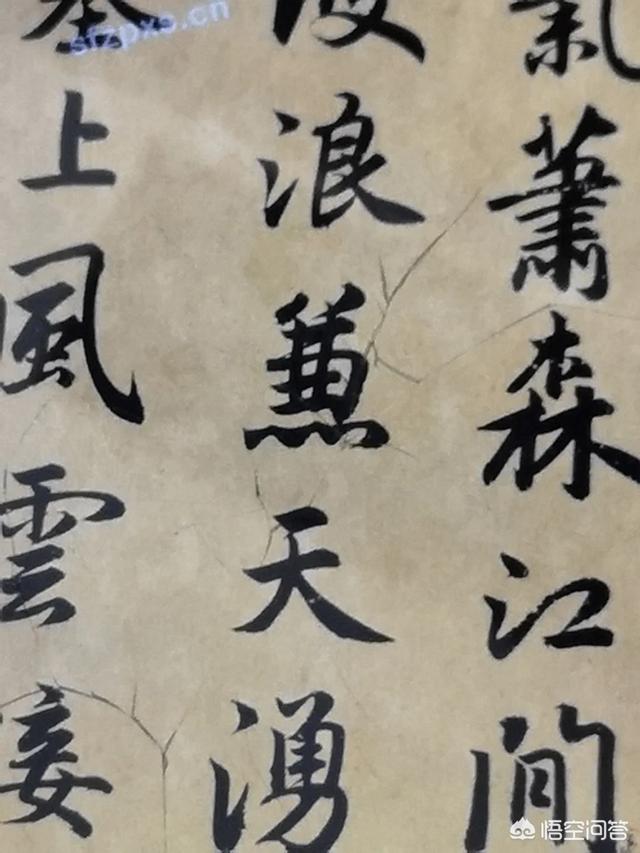 氣蕭森江間
波浪兼天湧
塞上風雲接
sfzpxs.cn
悟空问答